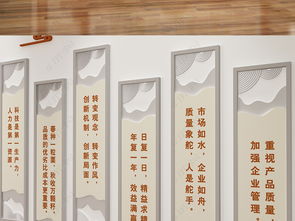 科技是第一生产力，
人力是第一资源。
春种一粒粟，秋收万颗籽，
品质的优劣比成本更重要
转变观念，转变作风，
创新机制，创新局面
日复一日，精益求精
年复一年，效益满
市场如水，企业如舟
质量象舵，人是舵手。
重视产品质量
加强企业管理